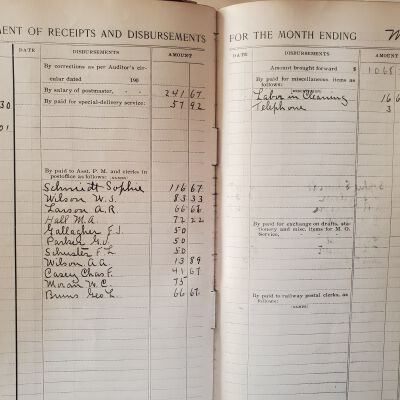 MENT OF RECEIPTS AND DISBURSEMENTS
DATE DISBURSEMENTS AMOUNT
By corrections as per Auditor's cir-
cular dated 190
By salary of postmaster, 241 67
30 By paid for special-delivery service: 57 92
01
By paid to Asst. P. M. and clerks in
postoffice as follows: (NAMES)
Schmidt Sophie 116 67
Wilson W. J. 83 33
Larson A. R. 66 66
Hall M. A. 72 22
Gallagher E. J. 50
Parker G. J. 50
Schuster F. L. 50
Wilson A. A. 13 89
Casey Chas. F. 41 67
Moran W. C. 75
Bruns Geo L. 66 67
FOR THE MONTH ENDING
DATE DISBURSEMENTS AMOUNT
Amount brought forward $ 1068
By paid for miscellaneous items as
follows:
Labor in Cleaning 16 6
Telephone 3
By paid for exchange on drafts, sta-
tionery and misc. items for M. O.
Service,
By paid to railway postal clerks, as
follows: (NAMES)